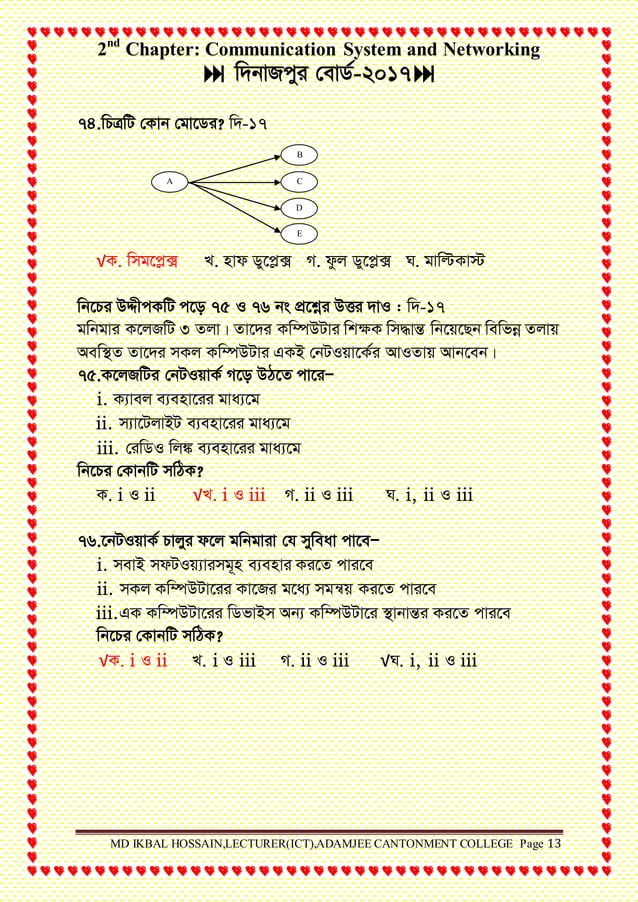 2nd Chapter: Communication System and Networking
দিনাজপুর বোর্ড-২০১৭
৭৪.চিত্রটি কোন মোডের? দি-১৭
B
A
C
D
E
√ক. সিমপ্লেক্স খ. হাফ ডুপ্লেক্স গ. ফুল ডুপ্লেক্স ঘ. মাল্টিকাস্ট
নিচের উদ্দীপকটি পড়ে ৭৫ ও ৭৬ নং প্রশ্নের উত্তর দাও : দি-১৭
মনিমার কলেজটি ৩ তলা। তাদের কম্পিউটার শিক্ষক সিদ্ধান্ত নিয়েছেন বিভিন্ন তলায়
অবস্থিত তাদের সকল কম্পিউটার একই নেটওয়ার্কের আওতায় আনবেন।
৭৫.কলেজটির নেটওয়ার্ক গড়ে উঠতে পারে–
i. ক্যাবল ব্যবহারের মাধ্যমে
ii. স্যাটেলাইট ব্যবহারের মাধ্যমে
iii. রেডিও লিঙ্ক ব্যবহারের মাধ্যমে
নিচের কোনটি সঠিক?
ক. i ও ii √খ. i ও iii গ. ii ও iii ঘ. i, ii ও iii
৭৬.নেটওয়ার্ক চালুর ফলে মনিমারা যে সুবিধা পাবে–
i. সবাই সফটওয়্যারসমূহ ব্যবহার করতে পারবে
ii. সকল কম্পিউটারের কাজের মধ্যে সমন্বয় করতে পারবে
iii.এক কম্পিউটারের ডিভাইস অন্য কম্পিউটারে স্থানান্তর করতে পারবে
নিচের কোনটি সঠিক?
√ক. i ও ii খ. i ও iii গ. ii ও iii √ঘ. i, ii ও iii
MD IKBAL HOSSAIN,LECTURER(ICT),ADAMJEE CANTONMENT COLLEGE Page 13